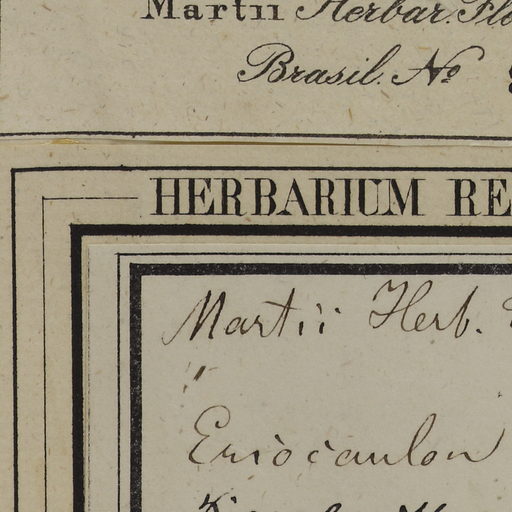 Martii Herbar. Flo
Brasil. No
HERBARIUM RE
Martii Herb.
"
Eriocaulon